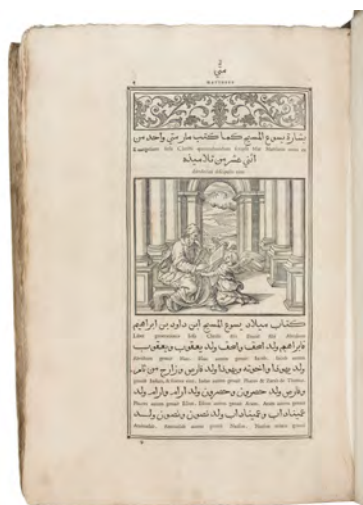 متي
MATTHEVS
بشارة يسوع المسيح كما كتب مار متي واحد من
Evangelium Iesu Christi quemadmodum scripsit Mar Mattheus unus ex
اثني عشر من تلاميذه
duodecim discipulis eius
كتاب ميلاد يسوع المسيح ابن داود بن ابراهيم
Liber generationis Iesu Christi filii David filii Abraham
فابراهيم ولد اسحق واسحق ولد يعقوب ويعقوب
Abraham genuit Isaac. Isaac autem genuit Iacob. Iacob autem
ولد يهودا واخوته ويهودا ولد فارص وزارح من تامر
genuit Iudam, & fratres eius. Iudas autem genuit Phares & Zaram de Thamar.
وفارص ولد حصرون وحصرون ولد ارام وارام ولد
Phares autem genuit Esron. Esron autem genuit Aram. Aram autem genuit
عميناداب وعميناداب ولد نصون ونصون ولد
Aminadab. Aminadab autem genuit Naason. Naason autem genuit